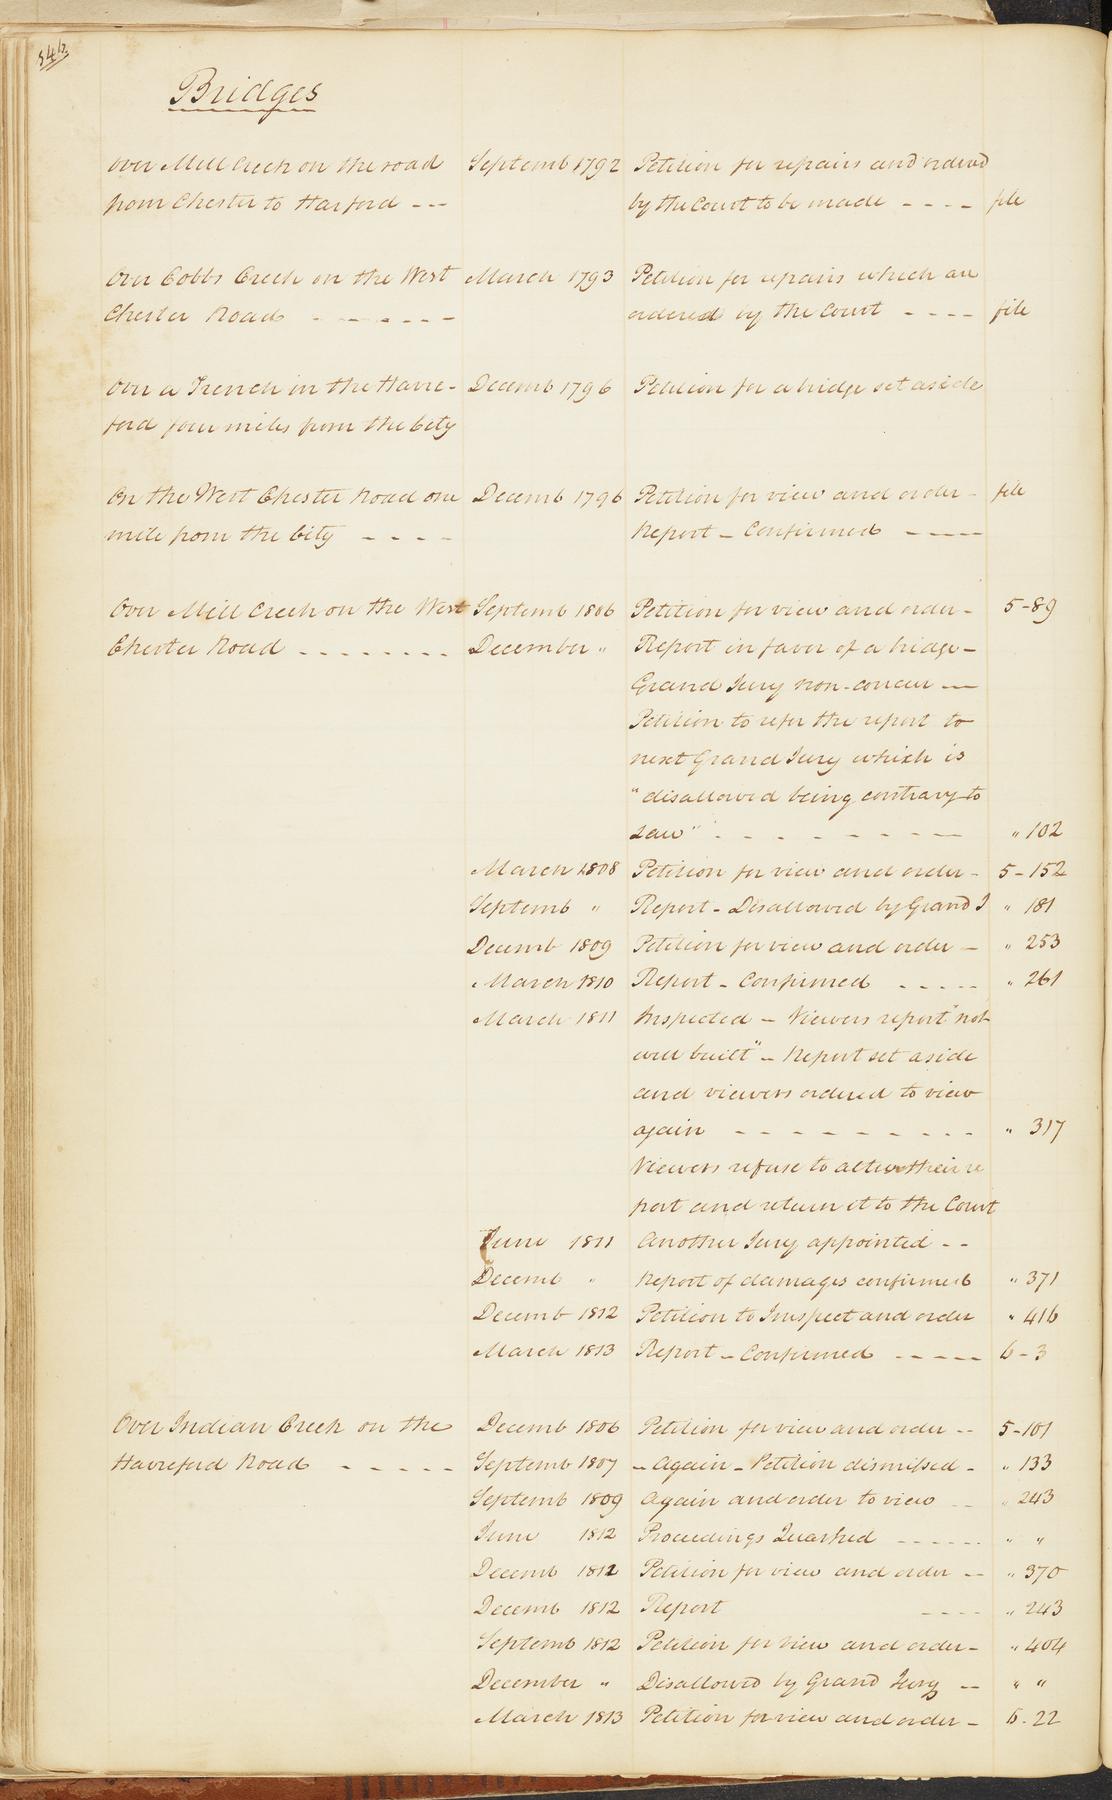 Bridges
Over Mill Creek on the road Septemb 1792 Petition for repairs and ordered
from Chester to Harford --- by the Court to be made ---- file
Over Cobbs Creek on the West March 1793 Petition for repairs which are
Chester Road ------- ordered by the Court ---- file
Over a Trench in the Havre- Decemb 1796 Petition for a bridge set aside
ford four miles from the City
On the West Chester Road one Decemb 1796 Petition for view and order - file
mile from the City ---- Report - Confirmed -----
Over Mill Creek on the West Septemb 1806 Petition for view and order - 5-89
Chester Road -------- December " Report in favor of a bridge -
Grand Jury non-concur -
Petition to refer the report to
next Grand Jury which is
"disallowed being contrary to
Law" -------- " 102
March 1808 Petition for view and order - 5-152
Septemb " Report - Disallowed by Grand J " 181
Decemb 1809 Petition for view and order - " 253
March 1810 Report - Confirmed ----- " 261
March 1811 Inspected - Viewers report "not
well built" - Report set aside
and viewers ordered to view
again --------- " 317
Viewers refuse to alter their re
port and return it to the Court
June 1811 Another Jury appointed --
Decemb " Report of damages confirmed " 371
Decemb 1812 Petition to Inspect and order " 416
March 1813 Report - Confirmed ----- 6-3
Over Indian Creek on the Decemb 1806 Petition for view and order -- 5-101
Havreford Road ----- Septemb 1807 - Again - Petition dismissed - " 133
Septemb 1809 Again and order to view -- " 243
June 1812 Proceedings Quashed ------ " "
Decemb 1812 Petition for view and order -- " 370
Decemb 1812 Report ---- " 243
Septemb 1812 Petition for view and order - " 404
December " Disallowed by Grand Jury -- " "
March 1813 Petition for view and order - 6-22